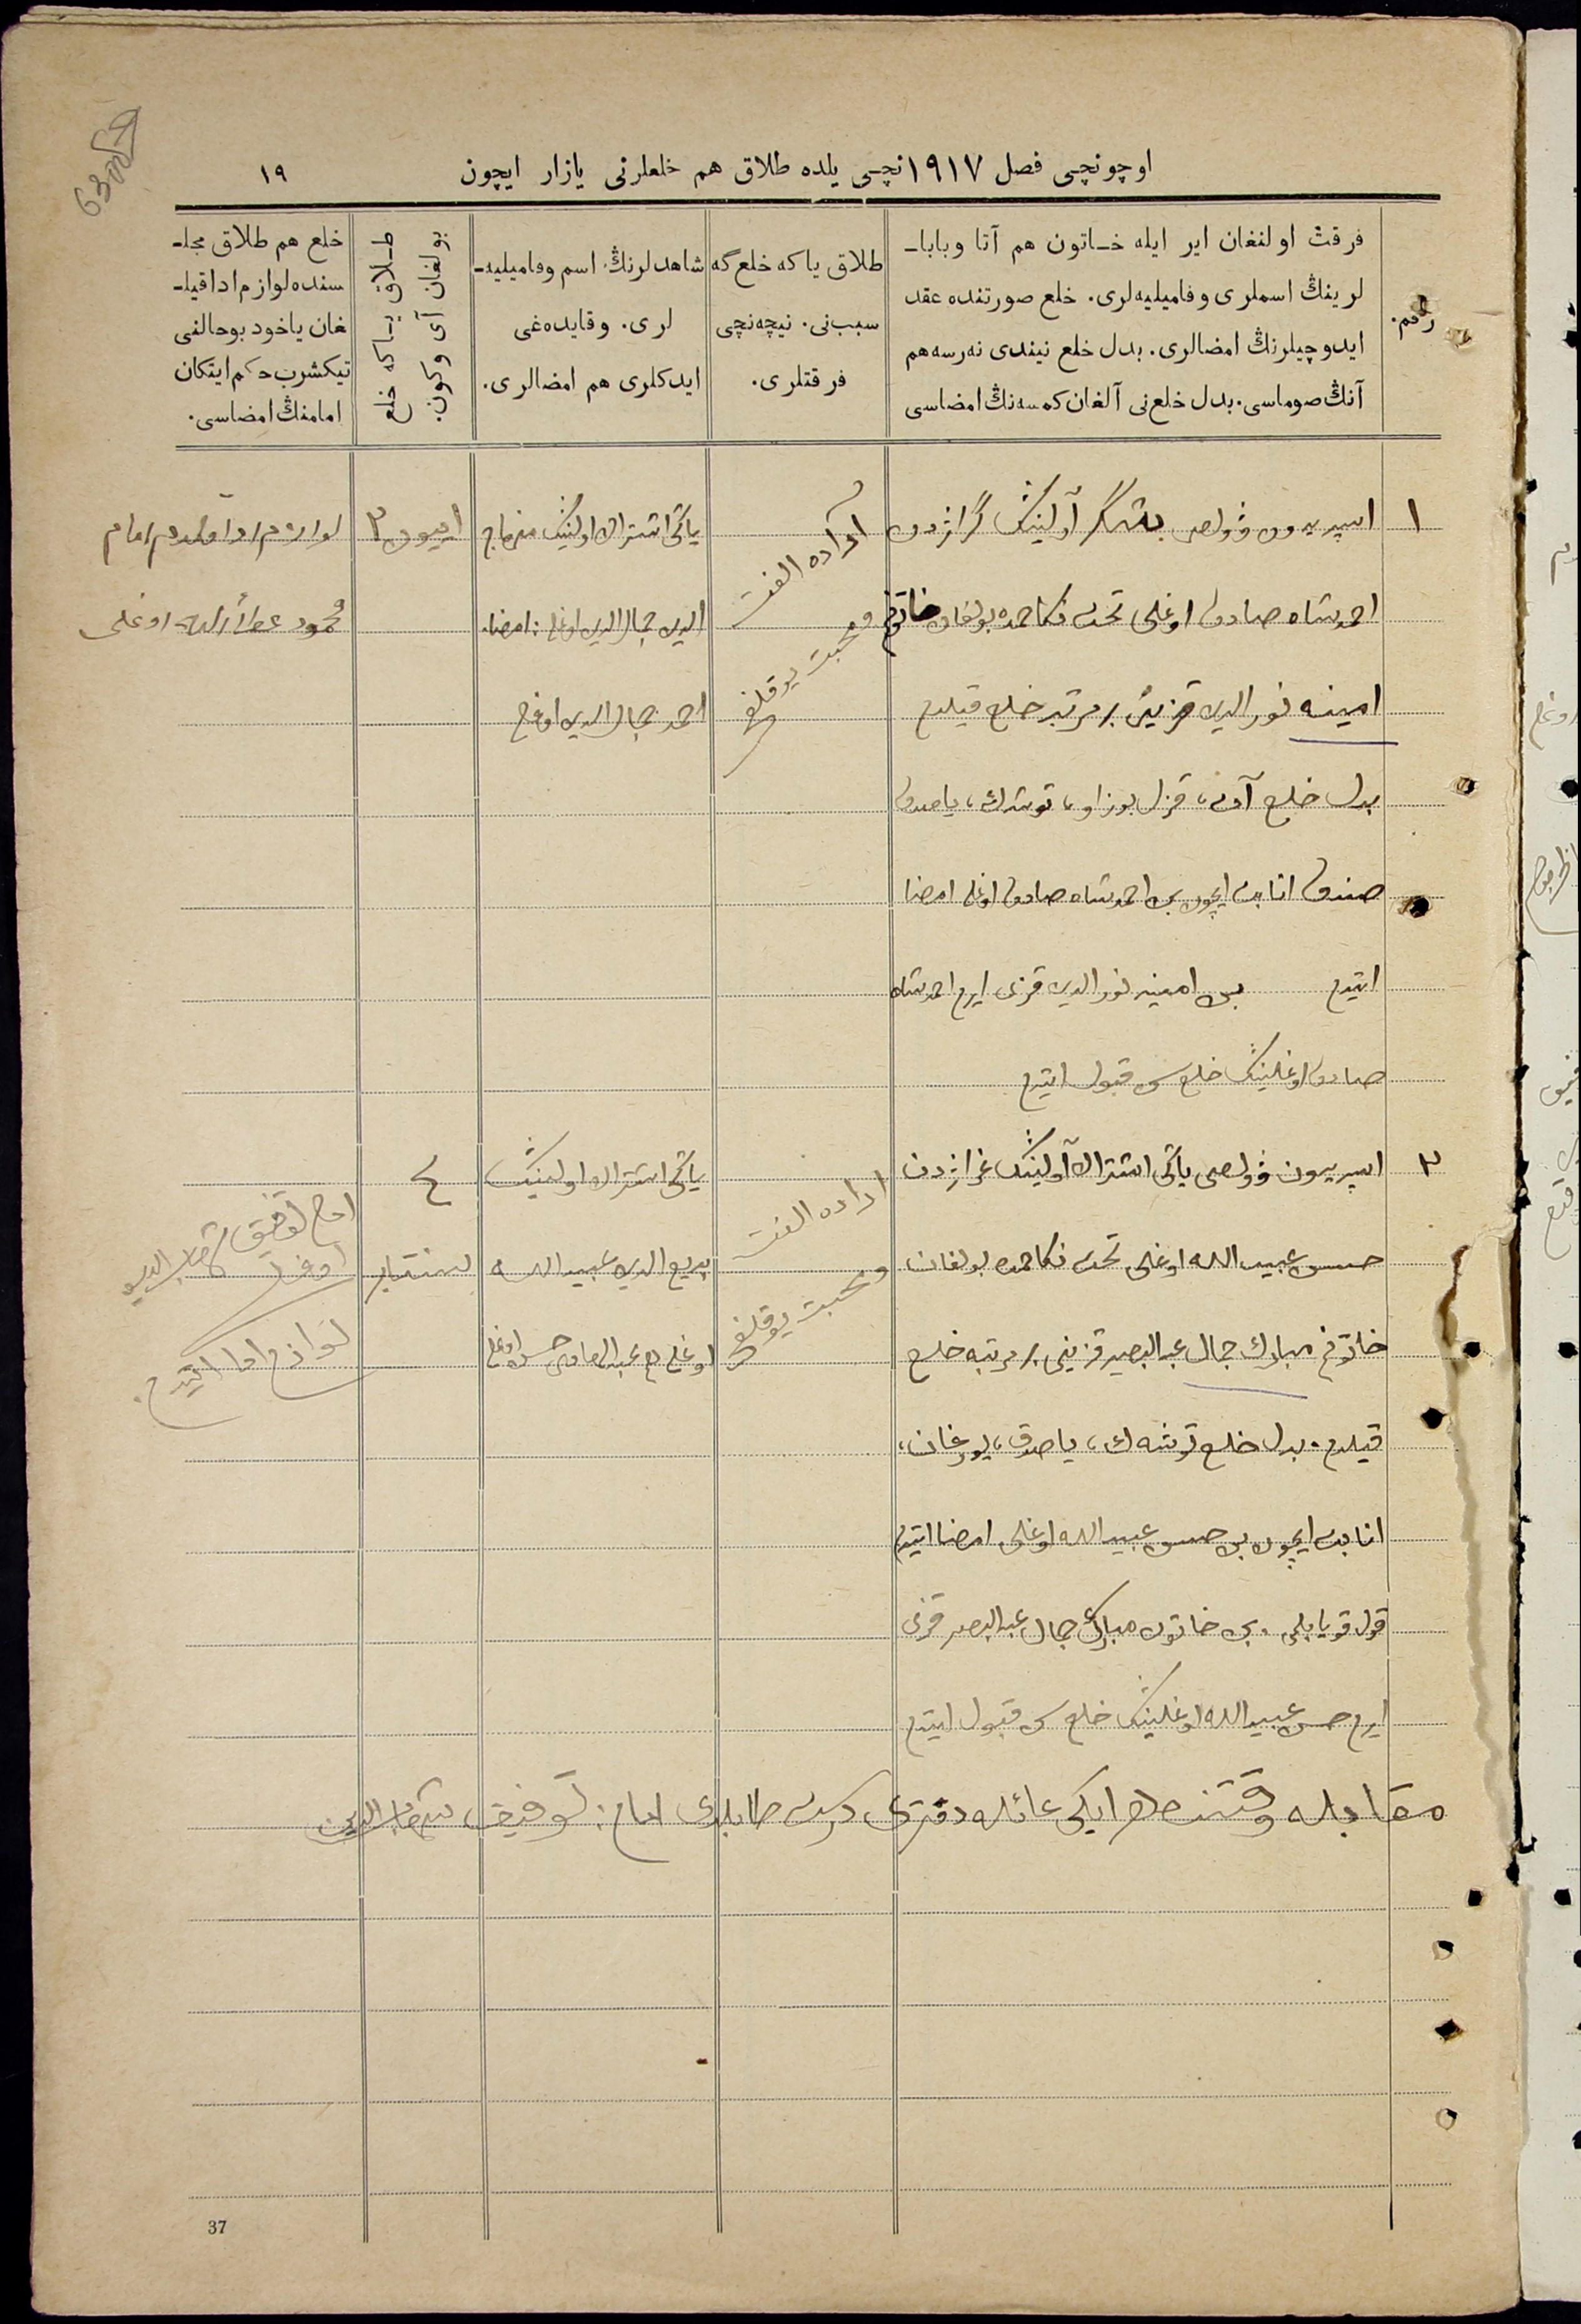 اوچونچی فصل ١٩١٧نچی یلده طلاق هم خلعلرنی یازار ایچون
١٩
رقم.
فرقت اولنغان ایر ایله خـاتون هم آتا وبابا-
لرینڭ اسملری وفامیلیه‌لری. خلع صورتنده عقد
ایدوچیلرنڭ امضالری. بدل خلع نیندی نه‌رسه هم
آنڭ صوماسی. بدل خلع‌نی آلغان کمسه‌نڭ امضاسی
طلاق یاکه خلع گه
سبب‌نی. نیچه‌نچی
فرقتلری.
شاهدلرنڭ اسم وفامیلیه-
لری. وقایده‌غی
ایدکلری هم امضالری.
طـلاق یـاکه خلع
بولغان آی وکون.
خلع هم طلاق مجلـ
سنده لوازم ادا قیلـ
غان یاخود بوحالنی
تیکشرب حکم ایتکان
امامنڭ امضاسی.
١
احمدشاه صادق اوغلی تحت نکاحمده بولغان خاتونم
امینه نورالدین قزینی بر مرتبه خلع قیلدم
بدل خلع آون، قزل بوزاو، توشك، یاصدق
صندق اثابت ایچون بن احمدشاه صادق اوغلی امضا
ایتدم بن امینه نورالدین قزی ایرم احمدشاه
صادق اوغلینڭ خلع سن قبول ایتدم
اراده الفت
ومحبت یوقلغی
یاڭی اشتراك اولینڭ منهاج
الدین جمال الدین اوغلی: امضاء
احمد جمال الدین اوغلی
اییون ٢
لوازم ادا قیلدم امام
محمود عطاءالله اوغلی
٢
حسن عبیدالله اوغلی تحت نکاحمده بولغان
خاتونم مبارك جمال عبدالبصیر قزینی بر مرتبه خلع
قیلدم. بدل خلع توشه‌ك، یاصدق، یورغان،
اثابت ایچون بن حسن عبیدالله اوغلی امضا ایتدم
قول قویا بلمی. بن خاتون مبارك جمال عبدالبصیر قزی
ایرم حسن عبیدالله اوغلینڭ خلع سن قبول ایتدم
اراده الفت
ومحبت یوقلغی
یاڭی اشتراك اولینڭ
بدیع الدین عبیدالله
٤
سنتابر
امام توفیق شهاب الدین
اوغلی
لوازم ادا ایتدم.
مقابله وقتنده هر ایکی عائله دفتری درست طابلدی امام: توفیق شهاب الدین
37